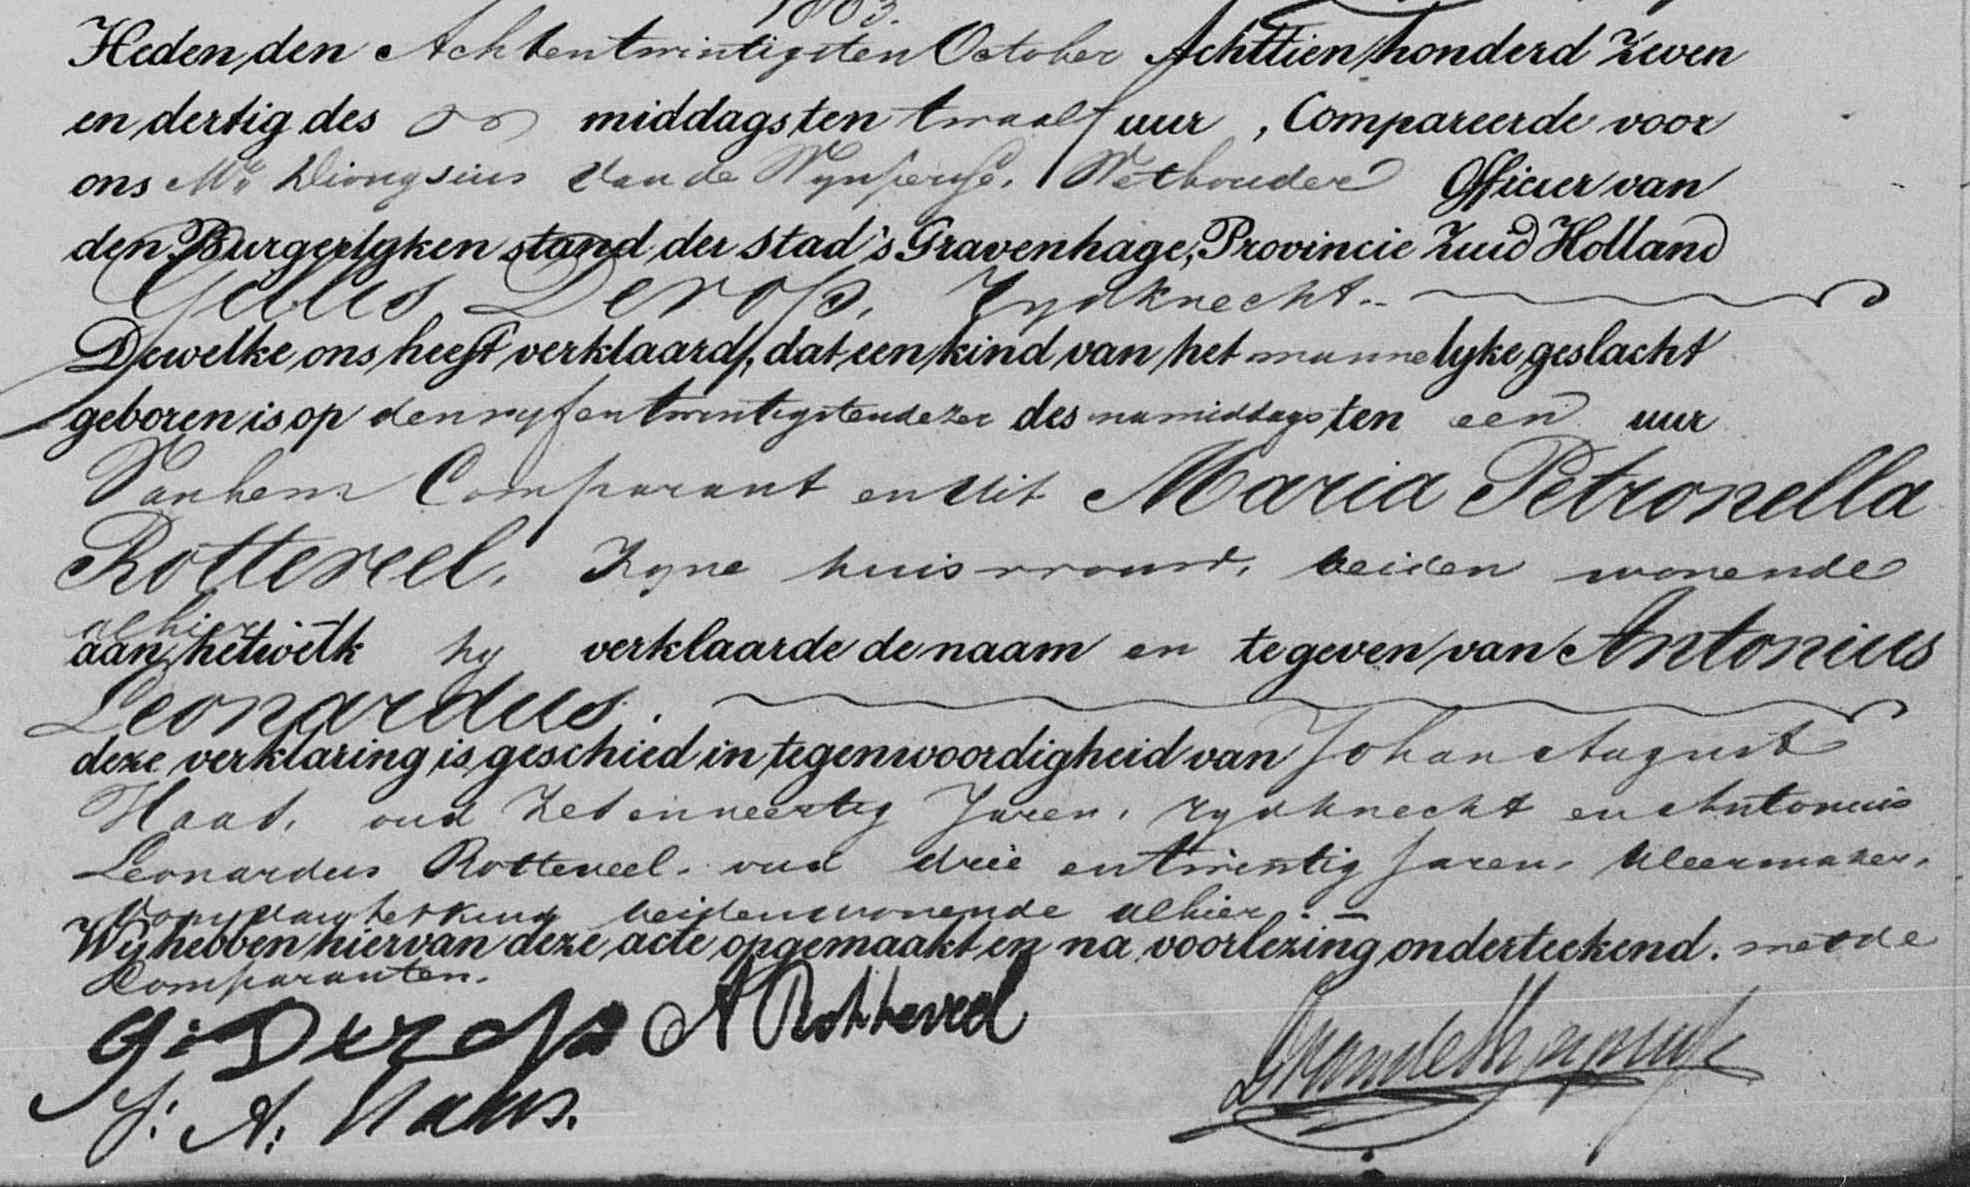 1803.
Heden den Achtentwintigsten October Achttien honderd Zeven
en dertig des middags ten twaalf uur, Compareerde voor
ons Mr. Dionysius Van de Wynpersse, Wethouder Officier van
den Burgerlyken stand der stad 's Gravenhage, Provincie Zuid Holland
Gillis Deross, Rydknecht..
Dewelke ons heeft verklaard, dat een kind van het mannelyke geslacht
geboren is op den vyfentwintigsten dezer des namiddags ten een uur
Van hem Comparant en uit Maria Petronella
Rotteveel, Zyne huisvrouw, beiden wonende
alhier
aan hetwelk hy verklaarde de naam en te geven van Antonius
Leonardus.
deze verklaring is geschied in tegenwoordigheid van Johan August
oud Zes en veertig Jaren, rydknecht en Antonius
Leonardus Rotteveel, oud drie entwintig Jaren, kleermaker,
Oom van het kind beiden wonende alhier. -
Wij hebben hiervan deze acte opgemaakt en na voorlezing onderteekend. met de
Comparanten.
G: Deross A Rotteveel
J: A:
D van de Wynpersse